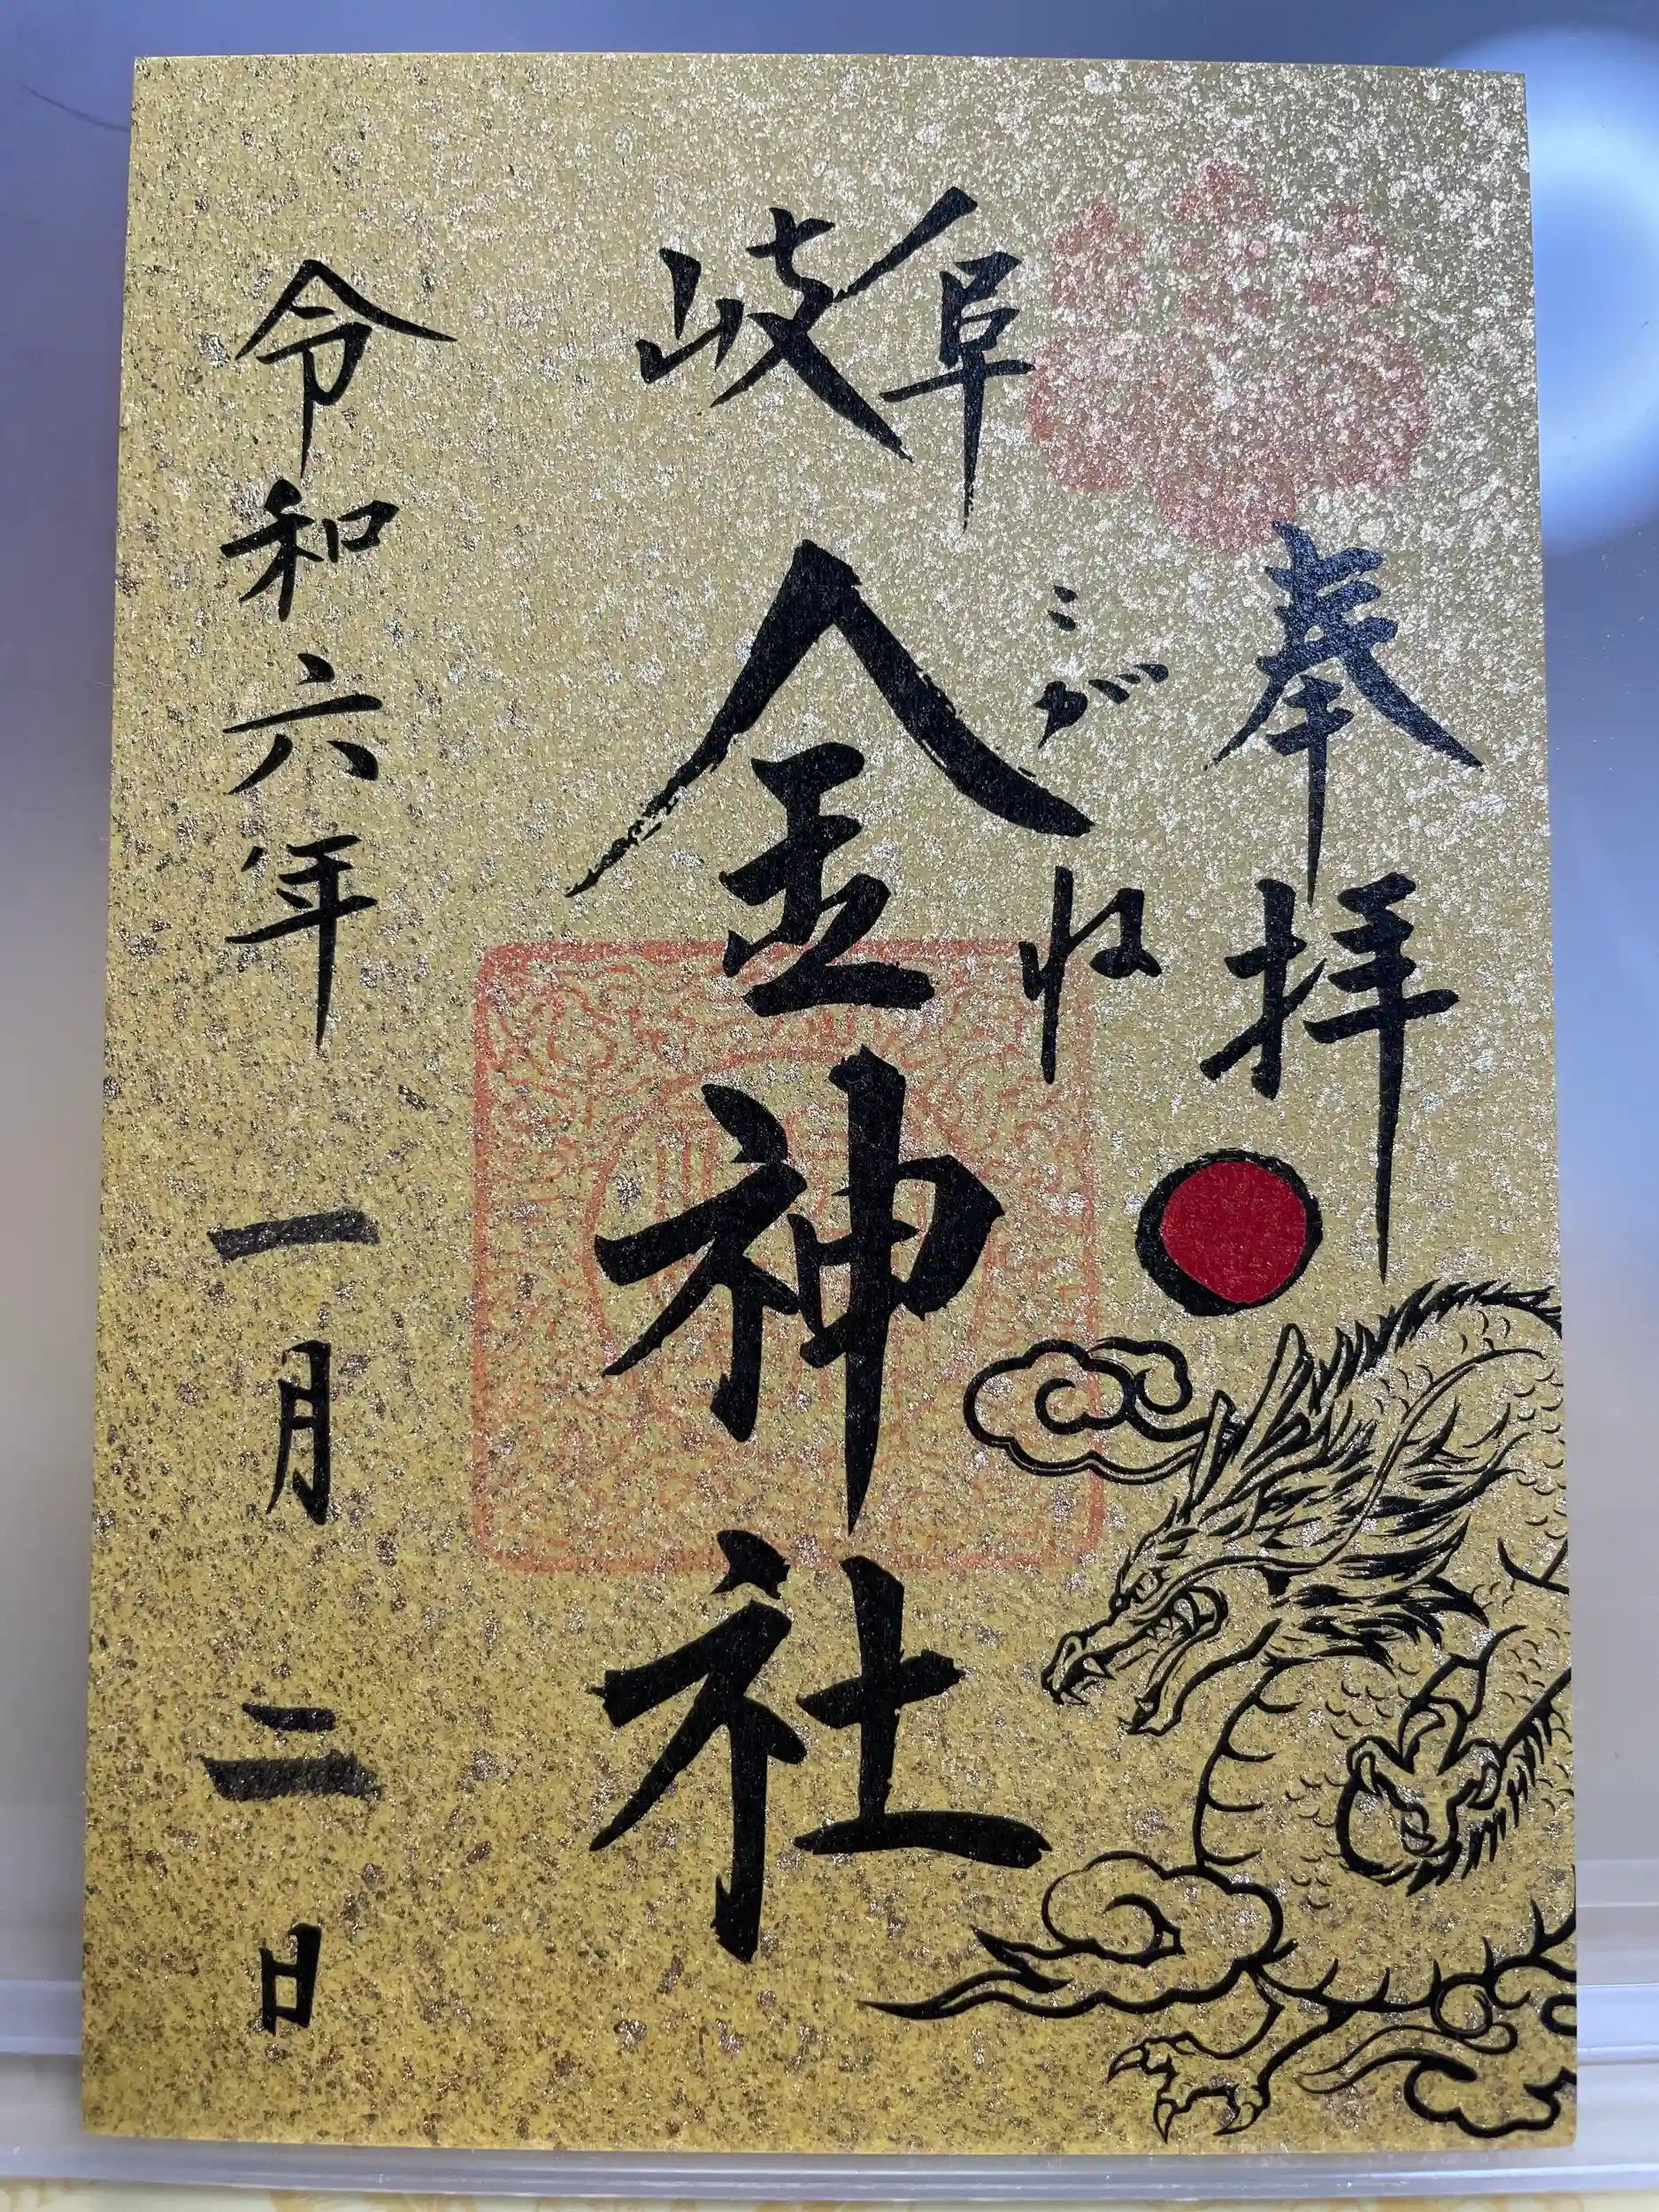 奉拝
岐阜
こがね
金神社
令和六年一月二日